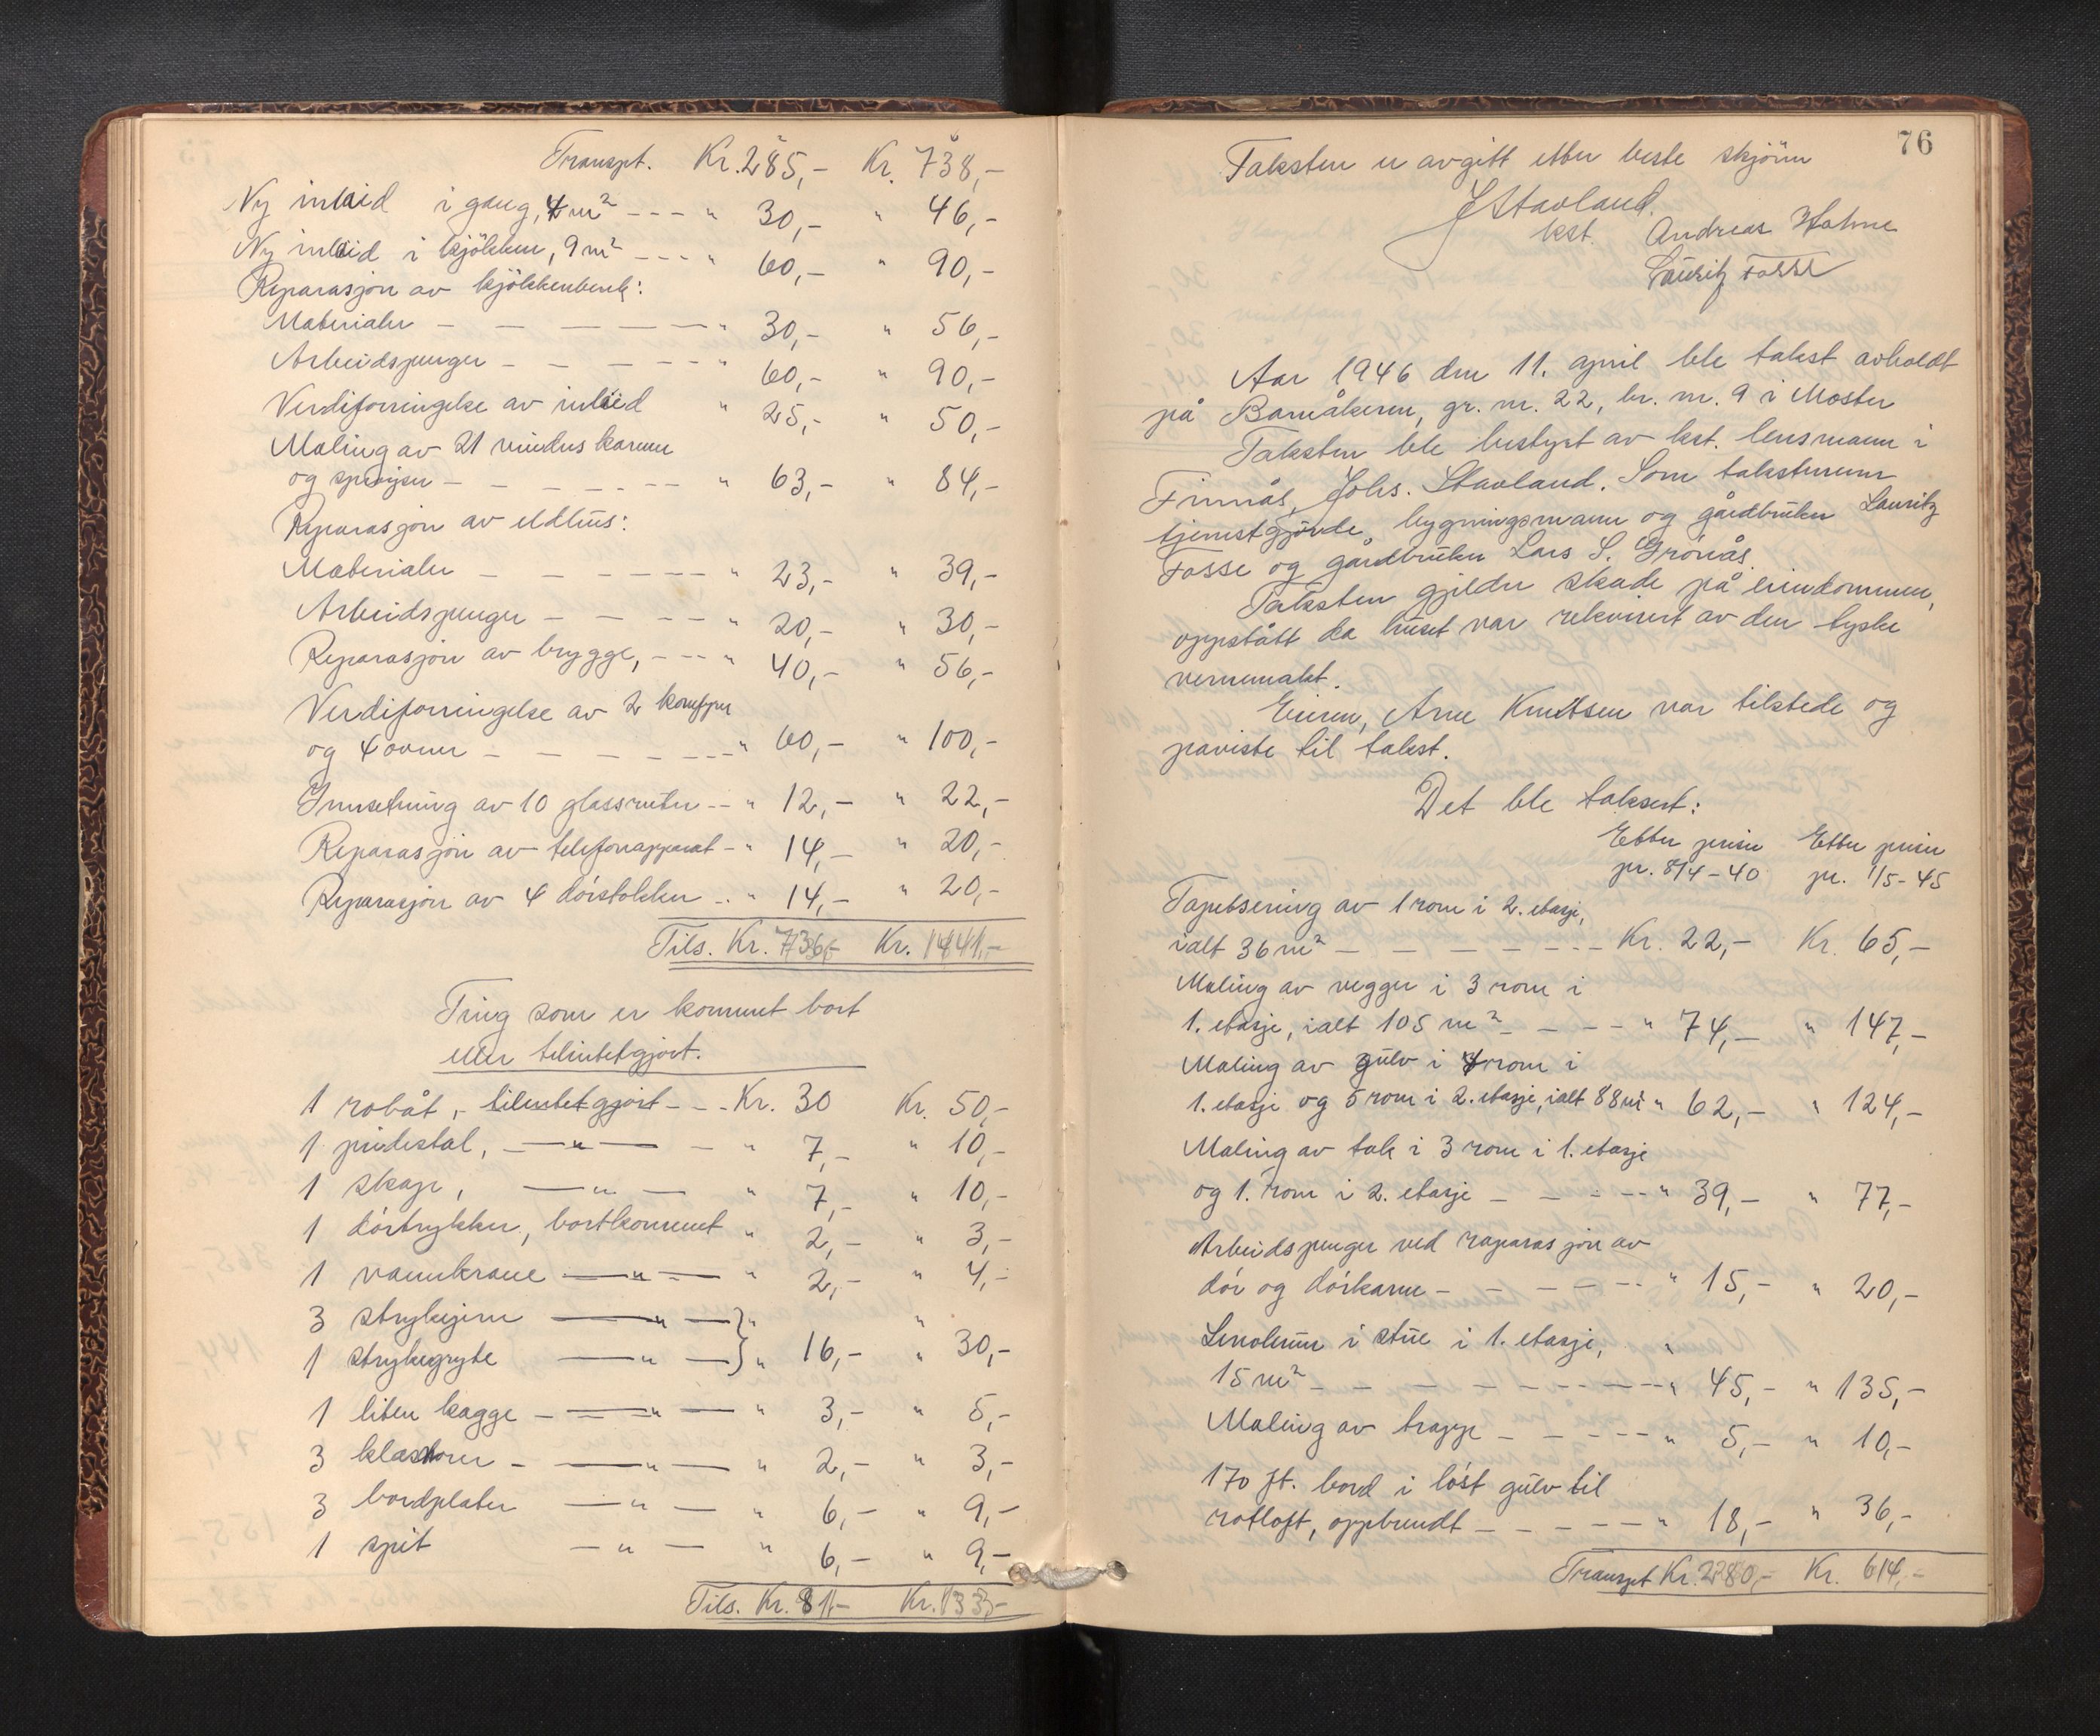 Transpt. Kr. 285,- Kr. 738,-
Ny inlaid i gang, 4 m² - - - " 30,- " 46,-
Ny inlaid i kjökken, 9 m² - - - " 60,- " 90,-
Reparasjon av kjökkenbenk:
Materialer - - - - - - " 30,- " 56,-
Arbeidspenger - - - - - - " 60,- " 90,-
Verdiforringelse av inlaid " 25,- " 50,-
Maling av 21 vindus karmer
og sprosser - - - - - - " 63,- " 84,-
Reparasjon av eldhus:
Materialer - - - - - - " 23,- " 39,-
Arbeidspenger - - - - - " 20,- " 30,-
Reparasjon av brygge, - - - " 40,- " 56,-
Verdiforringelse av 2 komfyrer
og 4 ovner - - - - - - - " 60,- " 100,-
Innsetning av 10 glassruter - - " 12,- " 22,-
Reparasjon av telefonapparat - " 14,- " 20,-
Reparasjon av 4 dörstokker - . " 14,- " 20,-
Tils. Kr. 736,- Kr. 1441,-
Ting som er kommet bort
eller tilintetgjort.
1 robåt, tilintetgjort - - - Kr. 30 Kr. 50,-
1 pidestal, — " — - " 7,- " 10,-
1 skap, — " — " 7,- " 10,-
1 dörtrykker, bortkommet " 2,- " 3,-
1 vannkrane — " — " 2,- " 4,-
3 strykejern — " — } " "
1 strykegryte — " — } " 16,- " 30,-
1 liten kagge - — " — " 3,- " 5,-
3 klassnorer - — " — " 2,- " 3,-
3 bordplater — " — " 6,- " 9,-
1 spit — " — " 6,- " 9,-
Tils. Kr. 81,- Kr. 133,-
76
Taksten er avgitt etter beste skjönn
J Stavland.
kst. Andreas Hahne
Lauritz Fosse
Aar 1946 den 11. april ble takst avholdt
på Barnåkeren, gr. nr. 22, br. nr. 9 i Moster
Taksten ble bestyrt av kst. lensmann i
Finnås, Johs. Stavland. Som takstmenn
tjenstgjorde bygningsmann og gårdbruker Lauritz
Fosse og gårdbruker Lars S. Grönås.
Taksten gjelder skade på eiendommen,
oppstått da huset var rekvirert av den tyske
vernemakt.
Eieren, Arne Knutsen var tilstede og
paviste til takst.
Det ble taksert:
Etter priser Etter priser
pr. 8/4-40 pr. 1/5-45
Tapetsering av 1 rom i 2. etasje,
ialt 36 m² - - - - - - - - Kr. 22,- Kr. 65,-
Maling av vegger i 3 rom i
1. etasje, ialt 105 m² - - - - " 74,- " 147,-
Maling av gulv i 4 rom i
1. etasje og 5 rom i 2. etasje, ialt 88 m² " 62,- " 124,-
Maling av tak i 3 rom i 1. etasje
og 1. rom i 2. etasje - - - - - " 39,- " 77,-
Arbeidspenger ved raparasjon av
dör og dörkarm - - - - - - - " 15,- " 20,-
Linoleum i stue i 1. etasje, "
15 m² - - - - - - - - - - " 45,- " 135,-
Maling av trapp - - - - - - " 5,- " 10,-
170 ft. bord i löst gulv til
rotloft, oppbrendt - - - - - - " 18,- " 36,-
Transpt Kr. 280,- Kr. 614,-